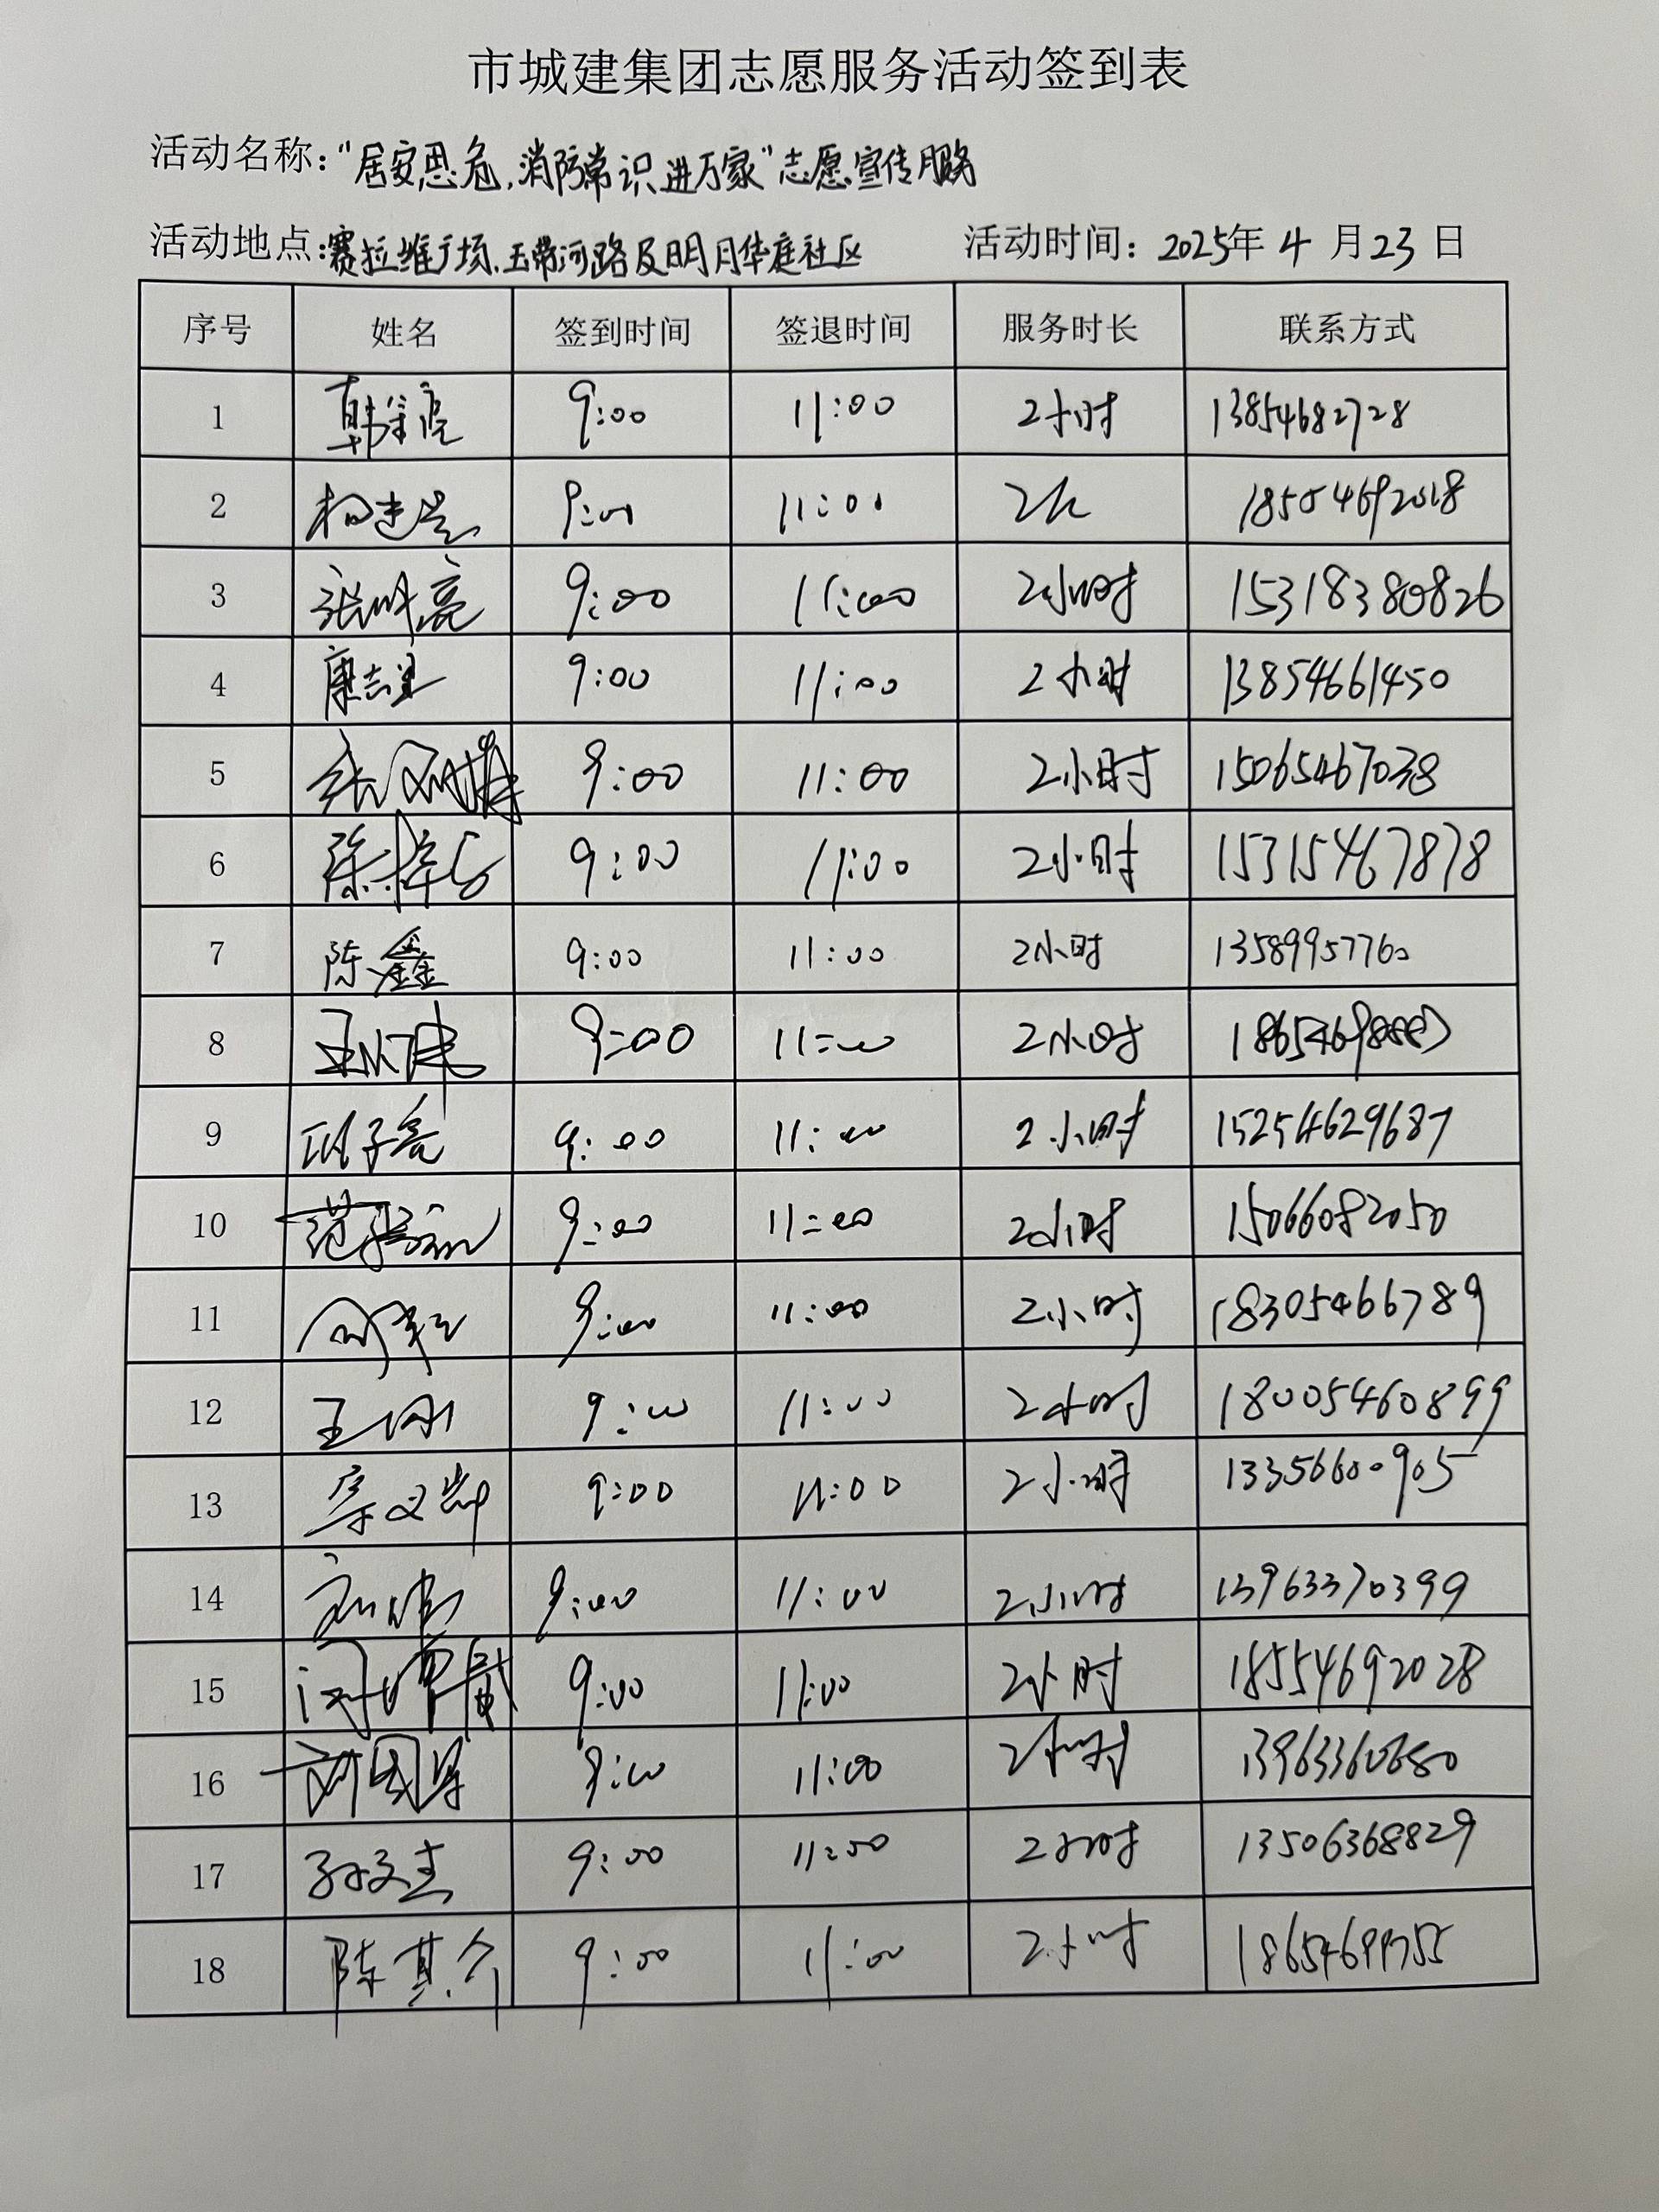 市城建集团志愿服务活动签到表
活动名称：“居安思危，消防常识进万家”志愿宣传服务
活动地点：赛拉维广场、玉带河路及明月华庭社区 活动时间：2025年4月23日
序号 姓名 签到时间 签退时间 服务时长 联系方式
1 9:00 11:00 2小时 13854682728
2 9:00 11:00 2h
3 9:00 11:00 2小时 15318380826
4 9:00 11:00 2小时 13854661450
5 9:00 11:00 2小时 15065467038
6 9:00 11:00 2小时 15315467878
7 陈鑫 9:00 11:00 2小时 13589957760
8 9:00 11:00 2小时
9 9:00 11:00 2小时 15254629687
10 9:00 11:00 2小时 15066082050
11 9:00 11:00 2小时 18305466789
12 王刚 9:00 11:00 2小时 18005460899
13 9:00 11:00 2小时 13356600905
14 9:00 11:00 2小时 13963370399
15 9:00 11:00 2小时 18554692028
16 刘国军 9:00 11:00 2小时 13963360680
17 孙文杰 9:00 11:00 2小时 13506368829
18 陈其介 9:00 11:00 2小时